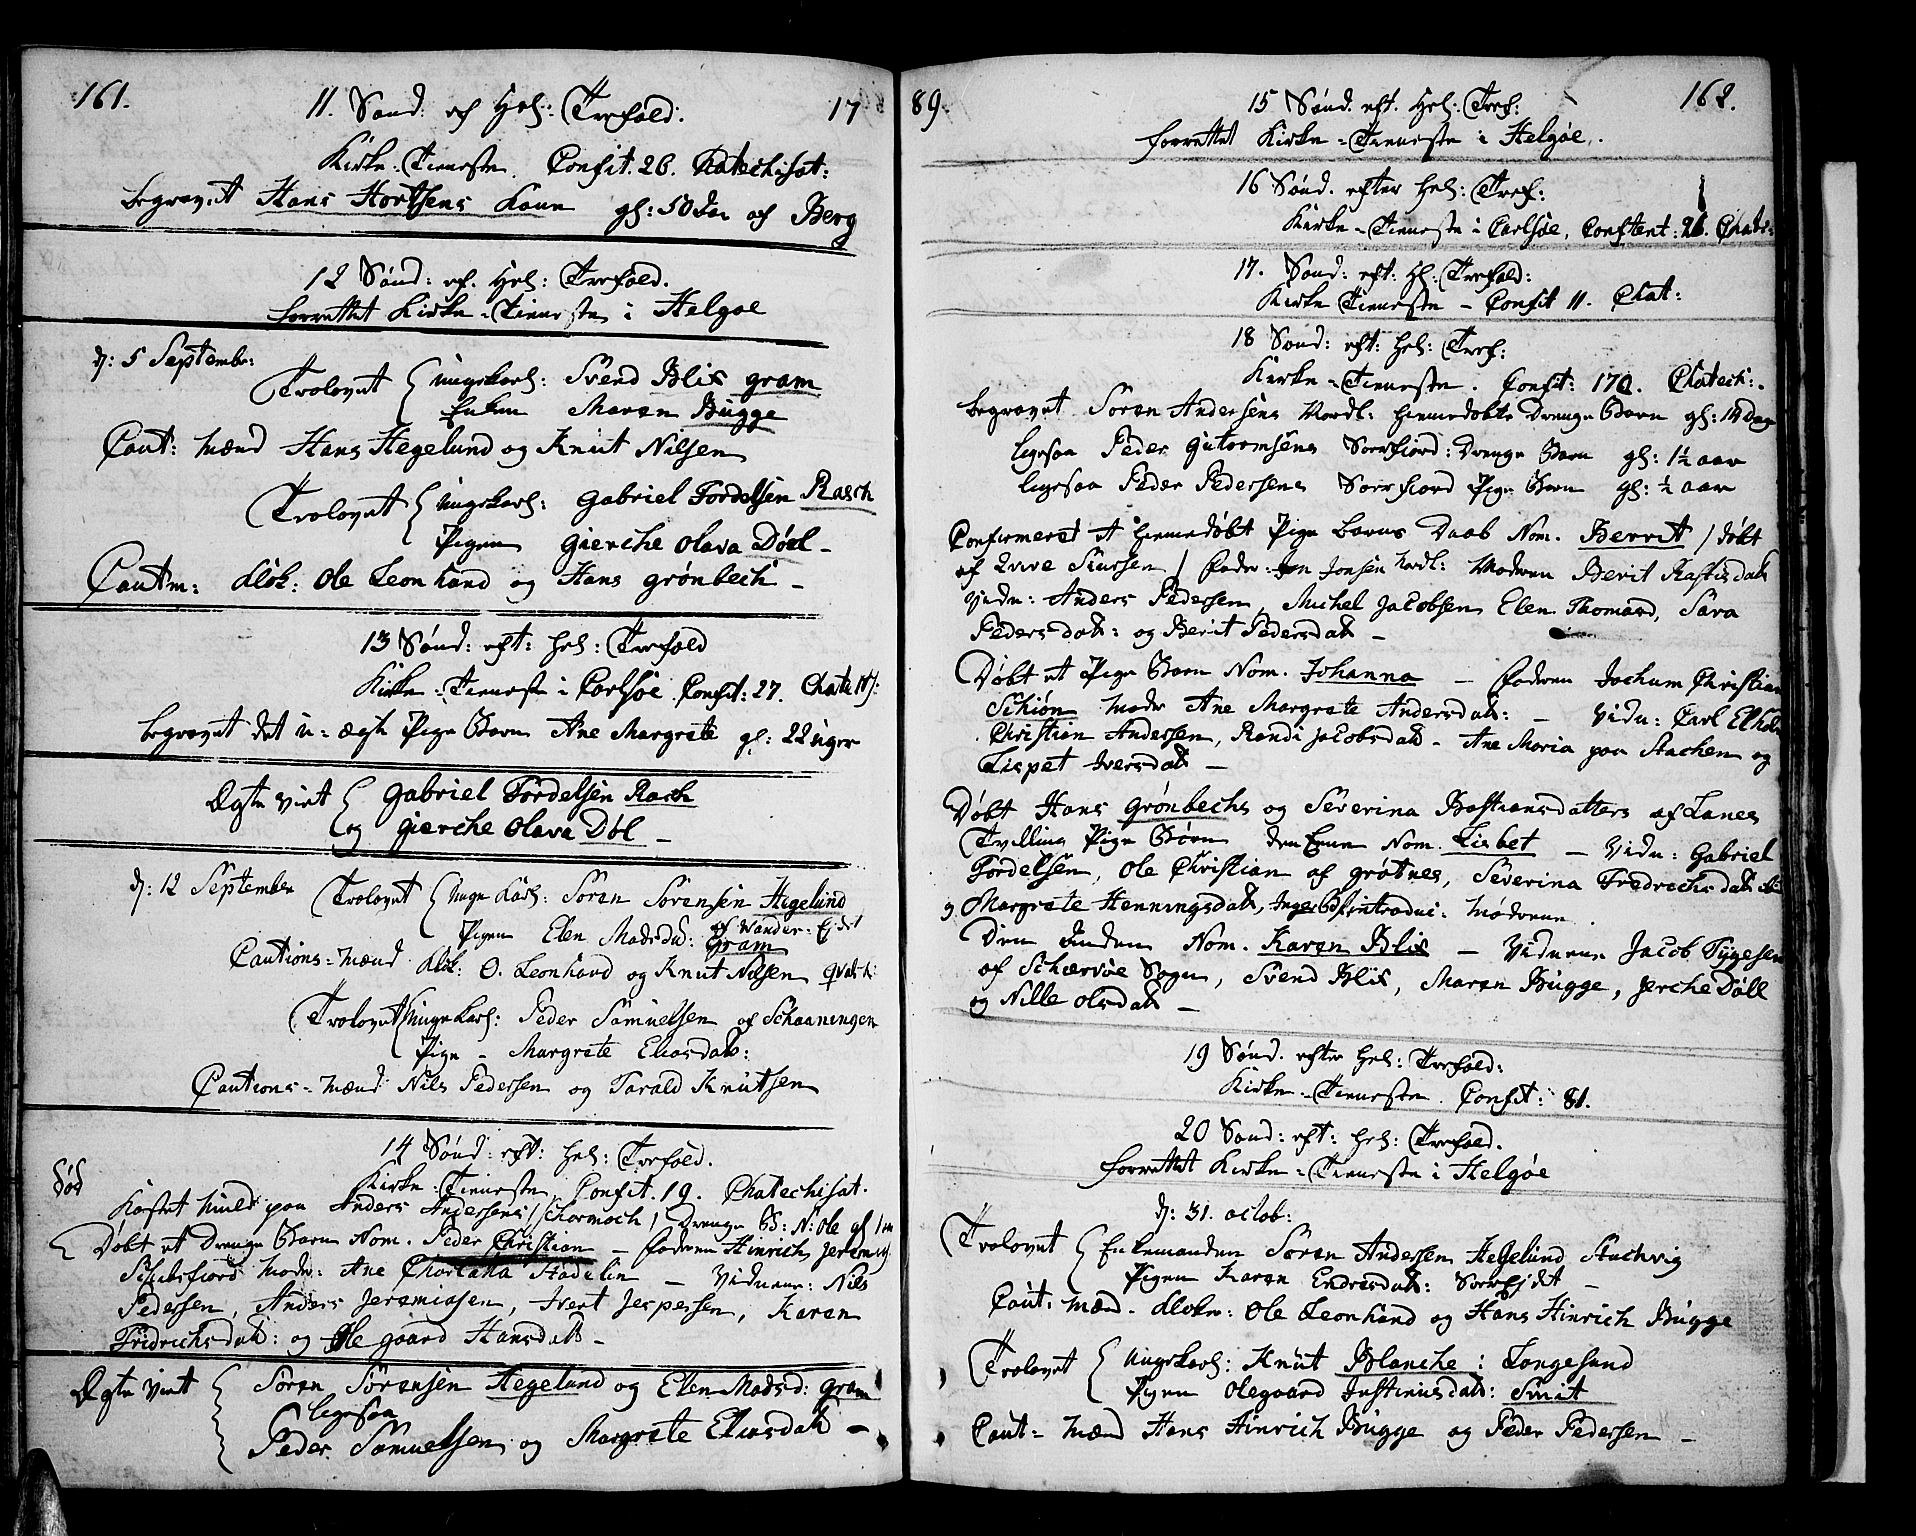 161.
11. Sønd: ef Hel: Trefold.
17
Kirke-Tieneste. Confit. 26. Catechisat:
begravet Hans Hortsens Kone gl: 50 Aar af Berg
12 Sønd: ef. Hel: Trefold.
forrettet Kirke-Tieneste i Helgøe
d: 5 Septembr:
Trolovet Ungekarl: Svend Blix gram
Enken Maren Bugge
Caut: Mænd Hans Hegelund og Knut Nilsen
Trolovet Ungekarl: Gabriel Tordelsen Rasch
Pigen Gierche Olava Døel -
Cautm: Klok: Ole Leonhard og Hans Grønbech -
13 Sønd: eft: Hel: Trefold
Kirke-Tieneste i Carlsøe Confit: 27.
begravet det u-ægte Pige Barn Ane Margrete gl: 22 uger
Ægte viet Gabriel Tordelsen Rasch
og Gierche Olava Døl -
d: 12 September
Trolovet Unge Karl: Søren Sørensen Hegelund
Pigen Elen Madsd: Gram
Cautions-Mænd Klok: O. Leonhard og Knut Nilsen
Trolovet Unge Karl: Peder Samuelsen af Schaaningen
Pige - Margrete Eliasdat:
Cautions-Mænd Nils Pedersen og Tarald Knutsen
14 Sønd: eft: Hel: Trefold.
Død
Kirke-Tieneste Confit. 19. Chatechisat.
Kastet Muld paa Anders Andersens / Drenge B: N: Ole gl 1
Døbt et Drenge Barn Nom. Peder Christian - Faderen Hinrich Jeremias.
Modr: Ane Stadelin - Vidnerne: Nils
Pedersen, Anders Jeremiasen, Ivert Jespersen, Karen
Fridrichsdat: og Ole gaard Hansdatt -
Ægte viet Søren Sørensen Hegelund og Elen Madsd: Gram
ligesaa
Peder Samuelsen og Margrete Eliasdatt -
89.
162.
15 Sønd. eft. Hel: Tref:
forrettet Kirke-Tieneste i Helgøe.
16 Sønd. efter Hel: Tref:
Kirke-Tieneste i Carlsøe, Confitent: 26. Chate:
17. Sønd: eft: Hl. Trefold:
Kirke Tieneste - Confit 11. Chat:
18 Sønd: eft: Hel: Tref:
Kirke-Tieneste. Confit: 170. Chatech:
begravet Søren Andersens Nordl: hiemmedøbte Drenge Barn gl: 14 Dage
ligesaa Peder Gutormsens Sørfiord: Drenge Barn gl: 1½ aar
ligesaa Peder Pedersens Sørfiord Pige Barn gl: ½ aar
Confirmeret et hiemmedøbt Pige Barns Daab Nom. Berrit / døbt
af Iver Siursen / Fader: Jon Jonsen Nordl: Moderen Berit Rastisdat
Vidn: Anders Pedersen, Michel Jacobsen Elen Thomasd, Sara
Pedersdat: og Berit Pedersdat -
Døbt et Pige Barn Nom. Johanna - Faderen Jochum Christian
Schiøn Modr Ane Margrete Andersdat: - Vidn: Carl
Christian Andersen, Randi Jacobsdat - Ane Maria paa Stachen og
Lispet Iversdat -
Døbt Hans Grønbechs og Severina Bastiansdatters af Lanes
Tvilling Pige Børn den Eene Nom. Lisbet - Vidn: Gabriel
Tordelsen, Ole Christian af Grøtnes, Severina Fredrichsdat
Margrete Henningsdat, introduc: Moderen.
Den Anden Nom. Karen Blix - Vidnerne Jacob Tygesen
af Schiervøe Sogn, Svend Blix, Maren Bugge, Jerche Døll
og Nille Olsdat -
19 Sønd. efter Hel: Trefold:
Kirke-Tieneste. Confit: 81.
20 Sønd: eft: Hel: Trefold.
forrettet Kirke-Tieneste i Helgøe
d: 31. Octob:
Trolovet Enkemanden Søren Andersen Hegelund Stachvig
Pigen Karen Endresdat: Sørrejdet -
Caut: Mænd. Klokr: Ole Leonhard og Hans Hinrich Bugge
Trolovet Ungekarl: Knut Blanche i Langesund
Pigen Olegaard Justinusdatt: Smit
Caut-Mænd Hans Hinrich Bugge og Peder Pedersen -